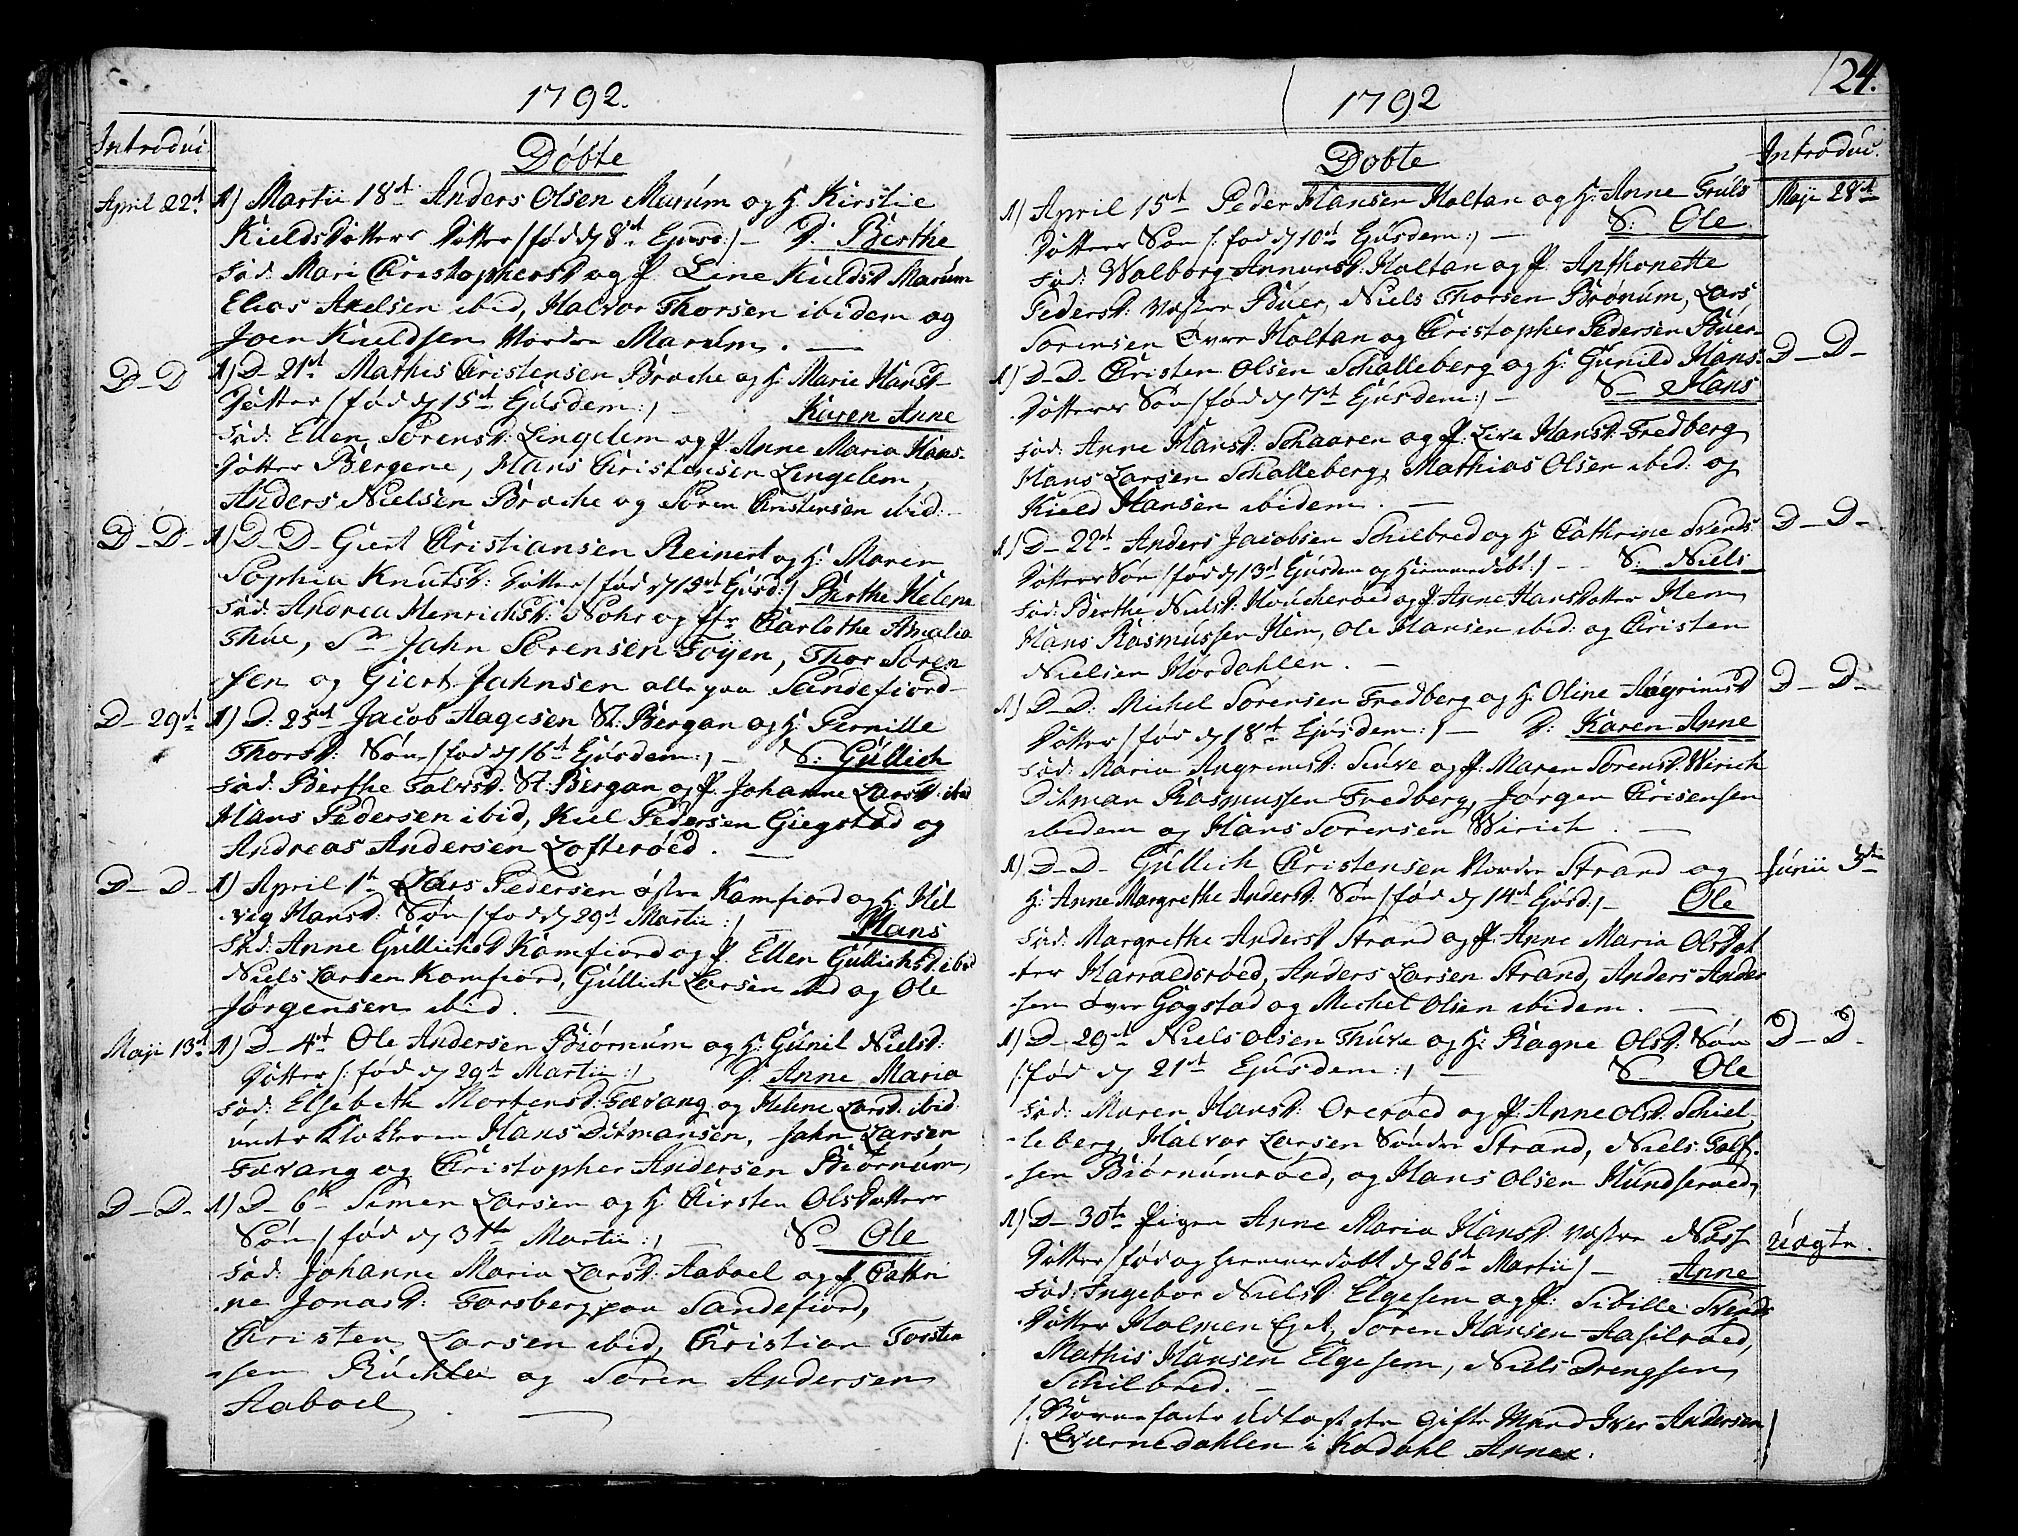 1792.
Introduc:
Döbte
April 22de
1) Martii 18de Anders Olsen Marúm og H. Kirstie
Kieldsdötters Dotter /: fød d 8de Ejusd :/ - D: Berthe
Fad: Mari Christophersd og P. Line Kieldsd Marúm
Elias Axelsen ibid, Halvor Thorsen ibidem og
Joen Kieldsen Nordre Marúm. -
D - D
1) D - 21de Mathis Christensen Broche og H. Marie Hansd-
Dötter /: fød d 15de Ejúsdem :/ - Karen Anne
Fad: Ellen Sörensd: Lingelem og P. Anne Maria Hans-
Dötter Bergene, Hans Christensen Lingelem,
Anders Nielsen Broche og Sören Christensen ibid: -
D - D -
1) D - D - Giert Christiansen Reinert og H. Maren
Sophia Knutsd: Dötter /: fød d 15de Ejúsd :/ Berthe Helene
Fad: Andrea Henrichsd: Nohr og Fr Carlothe Amalia
Thúe, Sr Jahn Sörensen Föyen, Thor Sören
sen og Giert Jahnsen alle paa Sandefiord -
D - 29de
1) D: 25de Jacob Aagesen St: Bergan og H. Pernille
Thorsd: Sön /: fød d 16de Ejúsdem :/ - S: Gúllich
Fad: Berthe Talvsd. St: Bergan og P. Johanne Larsd: ibid
Hans Pedersen ibid, Kiel Pedersen Giegstad og
Andreas Andersen Lofteröed. -
D - D -
1) April 1te Lars Pedersen östre Kamfiord og H. Hel
vig Hansd: Sön /: fød d 29de Martii :/ - Hans
Fad: Anne Gúllichsd Kamfiord og P. Ellen Gúllichsd: ibid
Niels Larsen Kamfiord, Gúllich Larsen ibid og Ole
Jörgensen ibid. -
Maji 13de
1) D - 4de Ole Andersen Biörnum og H: Gúnil Nielsd:
Dötter /: fød d 29de Martii :/ D: Anne Maria
Fad: Elsebeth Mortensd: Fævang og Helene Larsd: ibid.
under Klokkeren Hans Ditmansen, Jahn Larsen
Fævang og Christopher Andersen Biörnúm,
D - D -
1) D - 6te Simen Larsen og H. Kirsten Olsdotters
Sön /: fød d 31te Martii :/ S - Ole
Fad: Johanne Maria Larsd: Aaboel og P. Cathri
ne Jonasd: Forsberg paa Sandefiord,
Christen Larsen ibid, Christian Torsten
sen Búchlei og Sören Andersen
Aaboel. -
124.
1792
Döbte
Introduc:
1) April 15de Peder Hansen Holtan og H: Anne Truls
Dötters Sön /: fød d 10de Ejúsdem :/ - S: Ole
Fad: Walborg Annunsd: Holtan og P. Anthonette
Pedersd: vestre Búer, Niels Thorsen Brönúm, Lars
Sörensen Övre Holtan og Christopher Pedersen Búer
Maji 28de
1) D - D - Christen Olsen Schalleberg og H. Gúnild Hans-
Dötters Sön /: fød d 7de Ejúsdem :/ - S - Hans
Fad: Anne Hansd: Schaaren og P. Live Hansd: Fredberg
Hans Larsen Schalleberg, Mathias Olsen ibid: og
Kield Hansen ibidem. -
D - D -
1) D - 22de Anders Jacobsen Schilbred og H. Cathrine Svends
Dötters Sön /: fød d 13de Ejúsdem og hiemmedöbt :/ - - S: Niels
Fad: Berthe Nielsd: Houcheröed og P. Anne Hansdotter Hem
Hans Rasmússen Hem, Ole Hansen ibid: og Christen
Nielsen Hordahlen. -
D - D -
1) D - D: Michel Sörensen Fredberg og H. Oline Angrimsd
Dötter /: fød d 18de Ejúsdem :/ - D: Karen Anne
Fad: Maria Angrimsd: Súúe og P. Maren Sörensd: Wirich
Ditman Rasmussen Fredberg, Jörgen Chrisensen
ibidem og Hans Sörensen Wirich. -
D - D -
1) D - D - Gúllich Christensen Nordre Strand og
H. Anne Margrethe Andersd: Sön /: fød d 14de Ejúsd :/ - Ole
Fad: Margrethe Andersd Strand og P. Anne Maria Olsdot
ter Harraldsröed, Anders Larsen Strand, Anders Ander
sen övre Gogstad og Michel Olsen ibidem. -
Júnii 3de
1) D - 29de Niels Olsen Thúve og H. Ragne Olsd: Sön
/: fød d 21de Ejúsdem :/ - S - Ole
Fad: Maren Hansd: Overöed og P. Anne Olsd: Schiel-
leberg, Halvor Larsen Söndre Strand, Niels Tolf-
sen Biörnúmröed, og Hans Olsen Húndseröed,
D - D -
1) D - 30te Pigen Anne Maria Hansd: vestre Nass
Dötter /: fød og hiemmedöbt d 26de Martii :/ - Anne
Fad: Ingebor Nielsd: Elgesem og P: Sibille Svends
Dötter Holmen Eget, Sören Hansen Aasilröed,
Mathis Hansen Elgesem, Niels Drengsen
Schilbred. -
/: Barnefader Udlagdte Gifte Mand Iver Andersen
/: Qværnedahlen i Kodahl Annex. :/
Úægte.